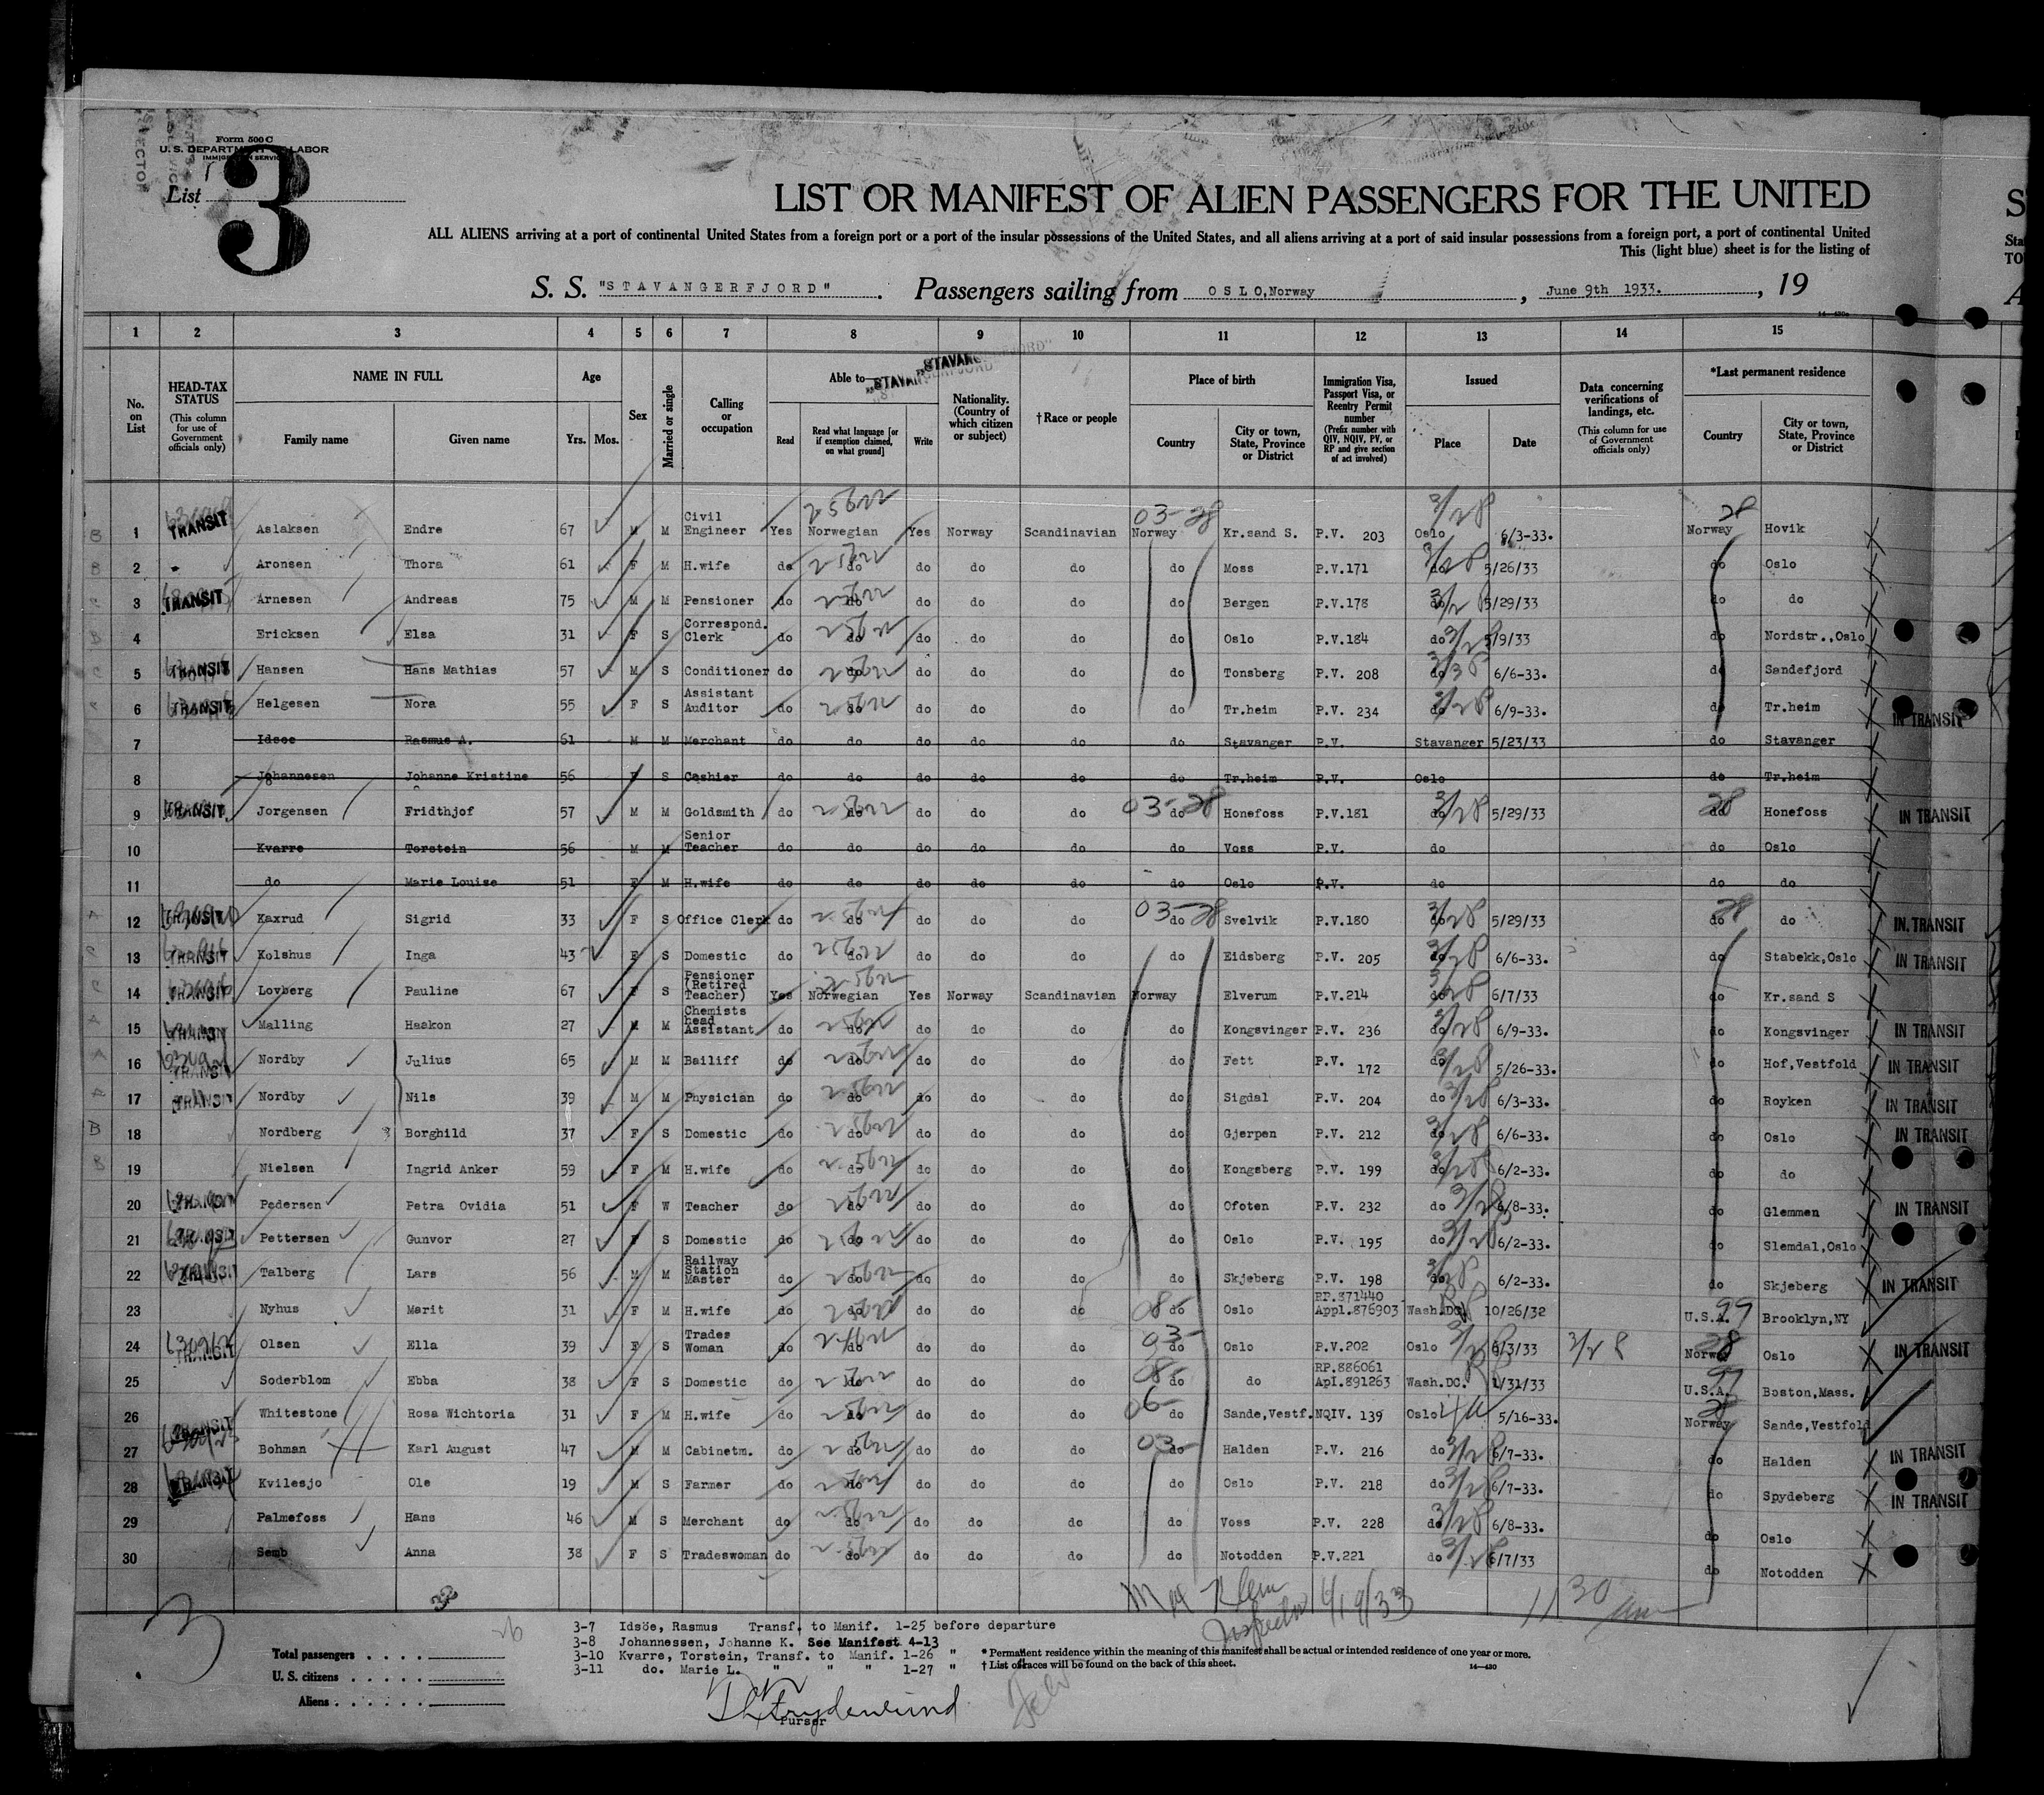 Form 500 C
U. S. DEPARTMENT LABOR
IMMIGRATION SERVICE
List 3
LIST OR MANIFEST OF ALIEN PASSENGERS FOR THE UNITED
ALL ALIENS arriving at a port of continental United States from a foreign port or a port of the insular possessions of the United States, and all aliens arriving at a port of said insular possessions from a foreign port, a port of continental United
This (light blue) sheet is for the listing of
S. S. "STAVANGERFJORD". Passengers sailing from OSLO, Norway, June 9th 1933., 19
1 2 3 4 5 6 7 8 9 10 11 12 13 14 15
No. on List
HEAD-TAX STATUS (This column for use of Government officials only)
NAME IN FULL Family name Given name
Age Yrs. Mos.
Sex
Married or single
Calling or occupation
Able to— Read Read what language [or if exemption claimed, on what ground] Write
"STAVANGERFJORD"
Nationality. (Country of which citizen or subject)
†Race or people
Place of birth Country City or town, State, Province or District
Immigration Visa, Passport Visa, or Reentry Permit number (Prefix number with QIV, NQIV, PV, or RP and give section of act involved)
Issued Place Date
Data concerning verifications of landings, etc. (This column for use of Government officials only)
*Last permanent residence Country City or town, State, Province or District
1 TRANSIT Aslaksen Endre 67 M M Civil Engineer Yes Norwegian Yes Norway Scandinavian Norway Kr.sand S. P.V. 203 Oslo 6/3-33. Norway Hovik
2 Aronsen Thora 61 F M H.wife do do do do do do Moss P.V.171 do 5/26/33 do Oslo
3 TRANSIT Arnesen Andreas 75 M M Pensioner do do do do do do Bergen P.V.178 do 5/29/33 do do
4 Ericksen Elsa 31 F S Correspond. Clerk do do do do do do Oslo P.V.184 do 5/9/33 do Nordstr.,Oslo
5 TRANSIT Hansen Hans Mathias 57 M S Conditioner do do do do do do Tonsberg P.V. 208 do 6/6-33. do Sandefjord
6 TRANSIT Helgesen Nora 55 F S Assistant Auditor do do do do do do Tr.heim P.V. 234 do 6/9-33. do Tr.heim IN TRANSIT
7 Idsoe Rasmus A. 61 M M Merchant do do do do do do Stavanger P.V. Stavanger 5/23/33 do Stavanger
8 Johannesen Johanne Kristine 56 F S Cashier do do do do do do Tr.heim P.V. Oslo do Tr.heim
9 TRANSIT Jorgensen Fridthjof 57 M M Goldsmith do do do do do 03-28 do Honefoss P.V.181 do 5/29/33 do Honefoss IN TRANSIT
10 Kvarre Torstein 56 M M Senior Teacher do do do do do do Voss P.V. do do Oslo
11 do Marie Louise 51 F M H.wife do do do do do do Oslo P.V. do do do
12 TRANSIT Kaxrud Sigrid 33 F S Office Clerk do do do do do 03-28 do Svelvik P.V.180 do 5/29/33 do do IN TRANSIT
13 TRANSIT Kolshus Inga 43 F S Domestic do do do do do do Eidsberg P.V. 205 do 6/6-33. do Stabekk,Oslo IN TRANSIT
14 TRANSIT Lovberg Pauline 67 F S Pensioner (Retired Teacher) Yes Norwegian Yes Norway Scandinavian Norway Elverum P.V.214 do 6/7/33 do Kr.sand S
15 TRANSIT Malling Haakon 27 M M Chemists head Assistant do do do do do do Kongsvinger P.V. 236 do 6/9-33. do Kongsvinger IN TRANSIT
16 TRANSIT Nordby Julius 65 M M Bailiff do do do do do do Fett P.V. 172 do 5/26-33. do Hof,Vestfold IN TRANSIT
17 TRANSIT Nordby Nils 39 M M Physician do do do do do do Sigdal P.V. 204 do 6/3-33. do Royken IN TRANSIT
18 Nordberg Borghild 37 F S Domestic do do do do do do Gjerpen P.V. 212 do 6/6-33. do Oslo IN TRANSIT
19 Nielsen Ingrid Anker 59 F M H.wife do do do do do do Kongsberg P.V. 199 do 6/2-33. do do
20 TRANSIT Pedersen Petra Ovidia 51 F W Teacher do do do do do do Ofoten P.V. 232 do 6/8-33. do Glemmen IN TRANSIT
21 TRANSIT Pettersen Gunvor 27 F S Domestic do do do do do do Oslo P.V. 195 do 6/2-33. do Slemdal,Oslo
22 TRANSIT Talberg Lars 56 M M Railway Station Master do do do do do do Skjeberg P.V. 198 do 6/2-33. do Skjeberg IN TRANSIT
23 Nyhus Marit 31 F M H.wife do do do do do do Oslo RP.871440 Appl.876903 Wash.DC. 10/26/32 U.S.A. Brooklyn,NY
24 TRANSIT Olsen Ella 39 F S Trades Woman do do do do do do Oslo P.V.202 Oslo 6/3/33 3/28 Norway Oslo IN TRANSIT
25 Soderblom Ebba 38 F S Domestic do do do do do do do RP.886061 Apl.891263 Wash.DC. 1/31/33 U.S.A. Boston,Mass.
26 Whitestone Rosa Wichtoria 31 F M H.wife do do do do do do Sande,Vestf. NQIV. 139 Oslo 5/16-33. Norway Sande,Vestfold
27 TRANSIT Bohman Karl August 47 M M Cabinetm. do do do do do do Halden P.V. 216 do 6/7-33. do Halden IN TRANSIT
28 TRANSIT Kvilesjo Ole 19 M S Farmer do do do do do do Oslo P.V. 218 do 6/7-33. do Spydeberg IN TRANSIT
29 Palmefoss Hans 46 M S Merchant do do do do do do Voss P.V. 228 do 6/8-33. do Oslo
30 Semb Anna 38 F S Tradeswoman do do do do do do Notodden P.V.221 do 6/7/33 do Notodden
Inspector 6/19/33
11 30 am
3-7 Idsöe, Rasmus Transf. to Manif. 1-25 before departure
3-8 Johannessen, Johanne K. See Manifest 4-13
3-10 Kvarre, Torstein, Transf. to Manif. 1-26 "
3-11 do. Marie L. " " " 1-27 "
Total passengers
U. S. citizens
Aliens
3
Purser
* Permanent residence within the meaning of this manifest shall be actual or intended residence of one year or more.
† List of races will be found on the back of this sheet.
14—430